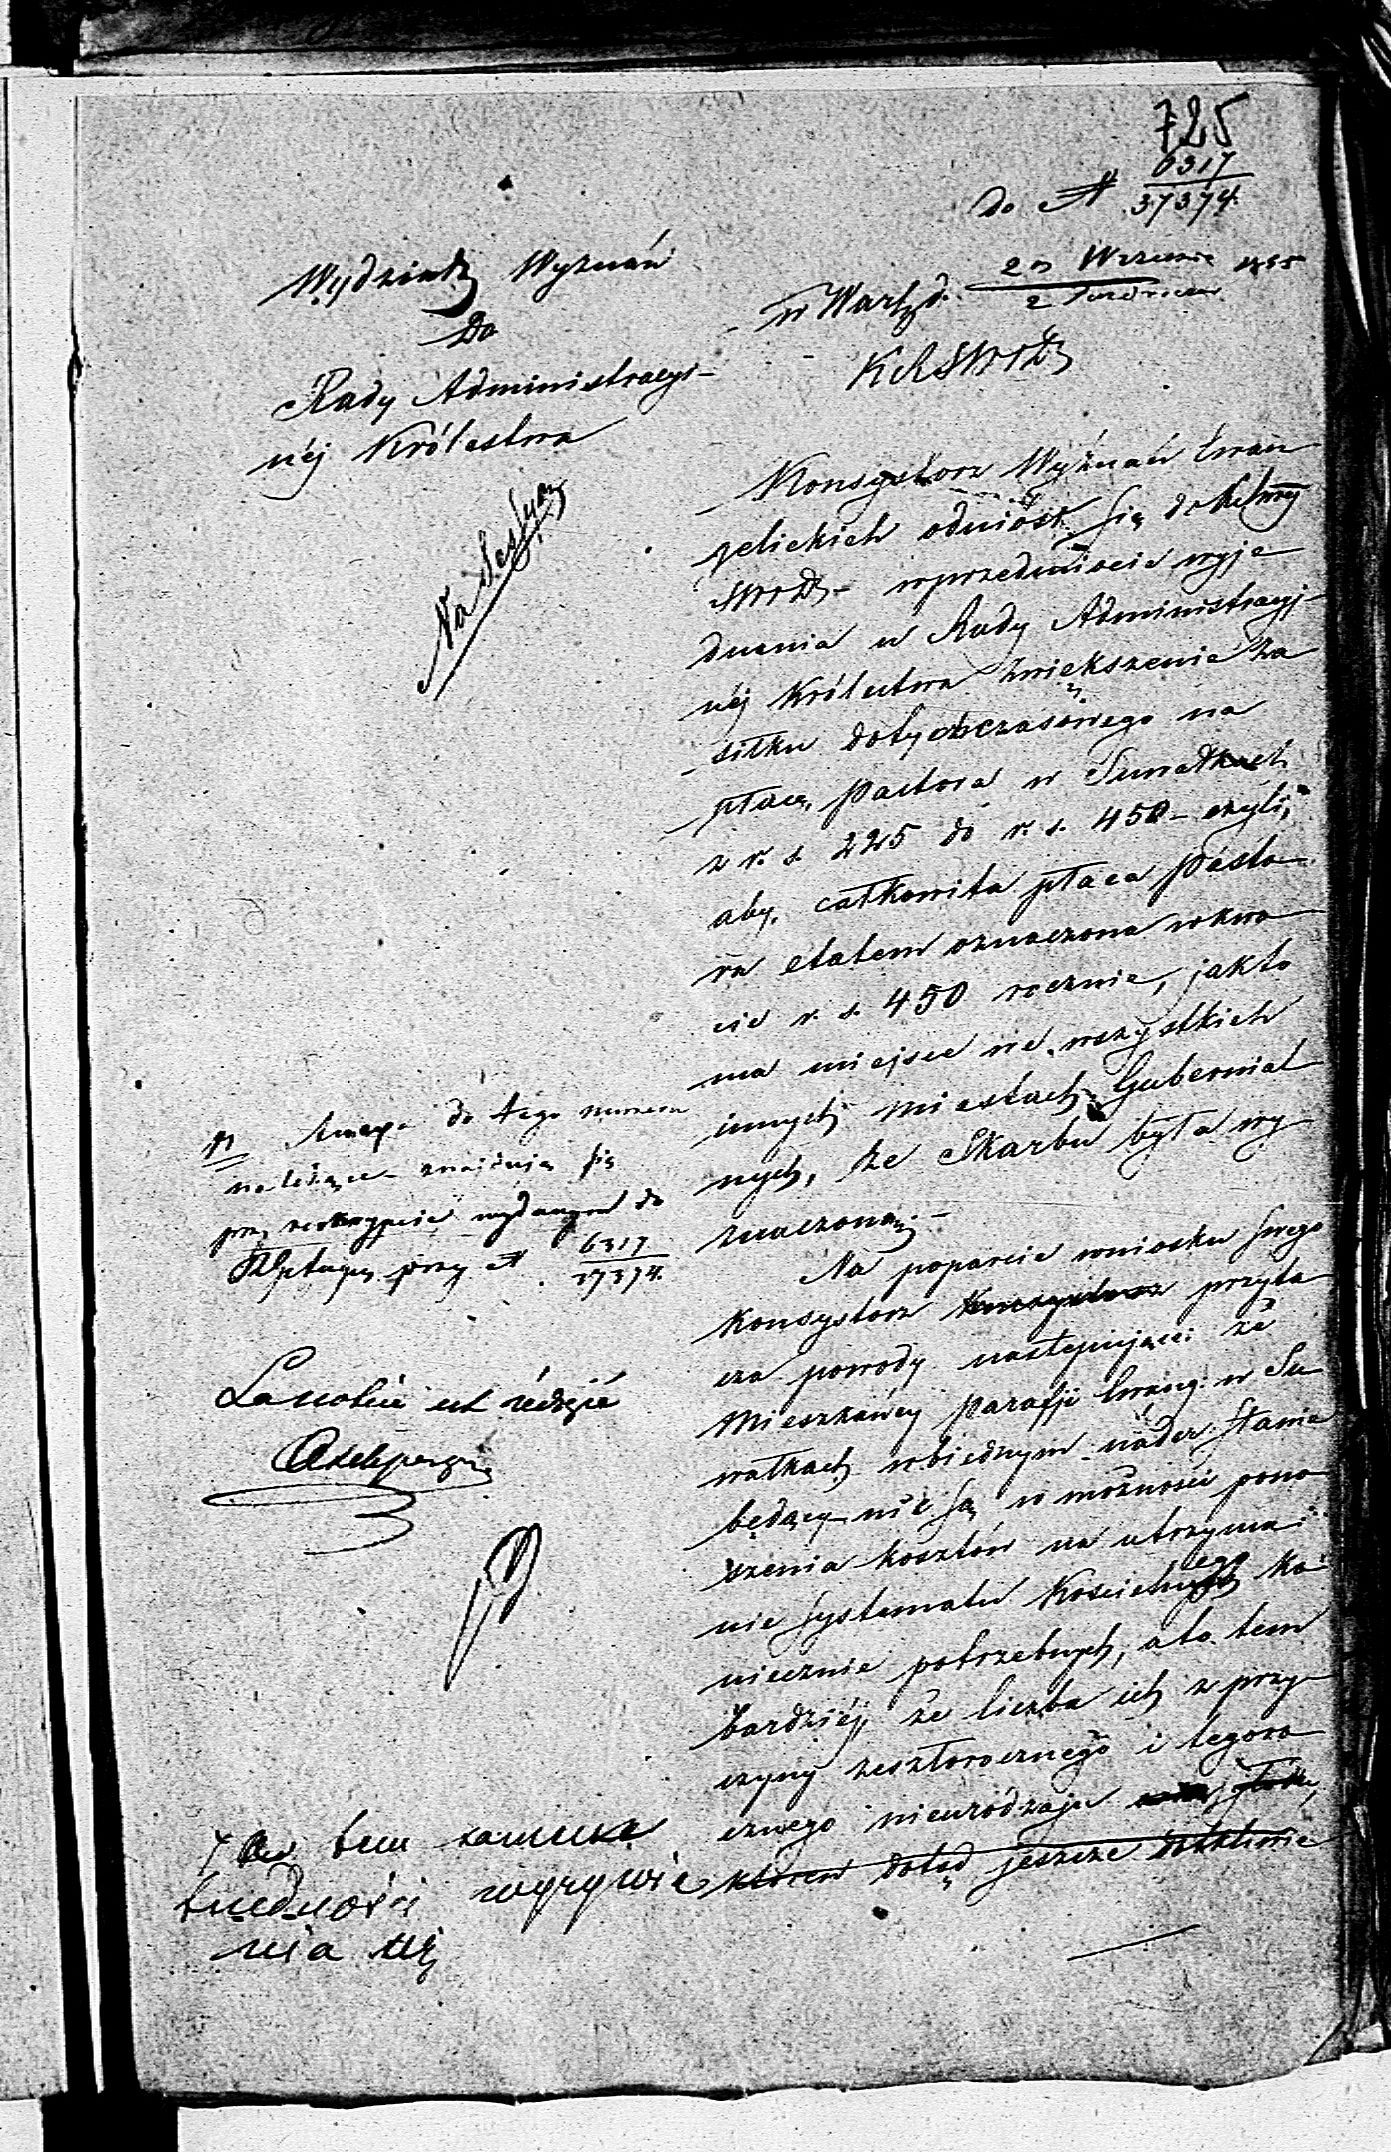 725
do N 6317
37374.
Wydział Wyznań
Do
Rady Administracyj-
néj Królestwa
Na Sessyą
w Warsz. d. 20 Września 1855
2 Październ.
KRSWiD
Konsystorz Wyznań Ewan
gelickich odniósł się do
SWiD – w przedmiocie wyje
dnania u Rady Administracyj-
néj Królestwa zwiększenia za
siłku dotychczasowego na
płacę Pastora w Suwałkach
z r. s. 225 do r. s. 450 – czyli,
aby całkowita płaca Pasto
ra etatem oznaczona w kwo
cie r. s. 450 rocznie, jak to
ma miejsce we wszystkich
innych miastach Gubernial
nych, ze Skarbu była wy
znaczoną. –
Na poparcie wniosku swego
Konsystorz przyta
cza powody następujące: że
Mieszkańcy Parafji Ewang. w Su
wałkach w biednym nader stanie
będący nie są w możności pono
szenia kosztów na utrzyma
nie systematu Kościelnego ko
niecznie potrzebnych, a to tem
bardziéj że liczba ich z przy-
czyny zeszłorocznego i tegoro
cznego nieurodzaju
dotąd jeszcze dotkliwie
N do tego numeru
należące znajdują się
przy reskrypcie wydanym do
przy N 6317
37374.
tem samem
trudności wyżywie
nia się